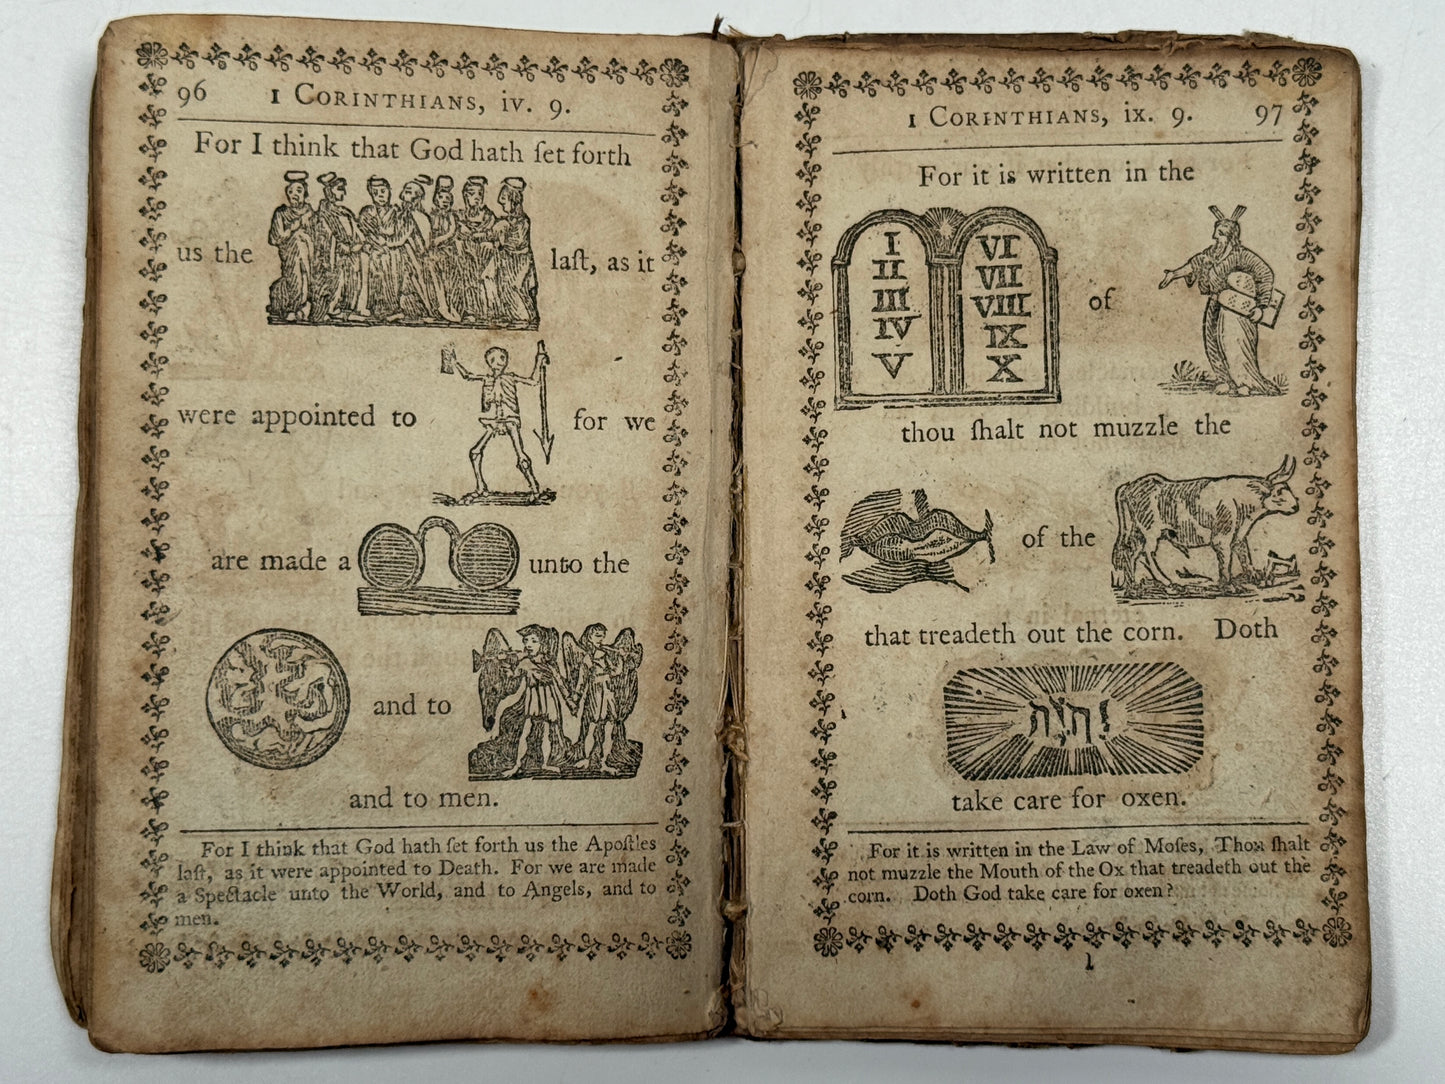 96 1 CORINTHIANS, iv. 9.
For I think that God hath ſet forth
us the laſt, as it
were appointed to for we
are made a unto the
and to
and to men.
For I think that God hath ſet forth us the Apoſtles
laſt, as it were appointed to Death. For we are made
a Spectacle unto the World, and to Angels, and to
men.
1 CORINTHIANS, ix. 9. 97
For it is written in the
I
II
III
IV
V
VI
VII
VIII
IX
X
of
thou ſhalt not muzzle the
of the
that treadeth out the corn. Doth
יהוה
take care for oxen.
For it is written in the Law of Moſes, Thou ſhalt
not muzzle the Mouth of the Ox that treadeth out the
corn. Doth God take care for oxen?